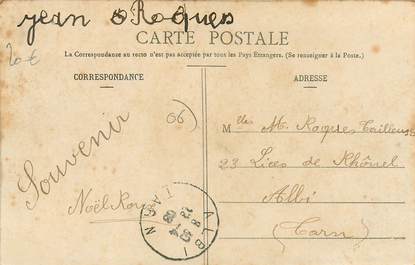 Jean Roques
CARTE POSTALE
La Correspondance au recto n'est pas acceptée par tous les Pays Etrangers. (Se renseigner à la Poste.)
20 €
CORRESPONDANCE
ADRESSE
06)
Souvenir
Noël Roy
Mlles M. Roques Tailleuse
23 Lices de Rhônel
Albi
(Tarn)
ALBI
TARN